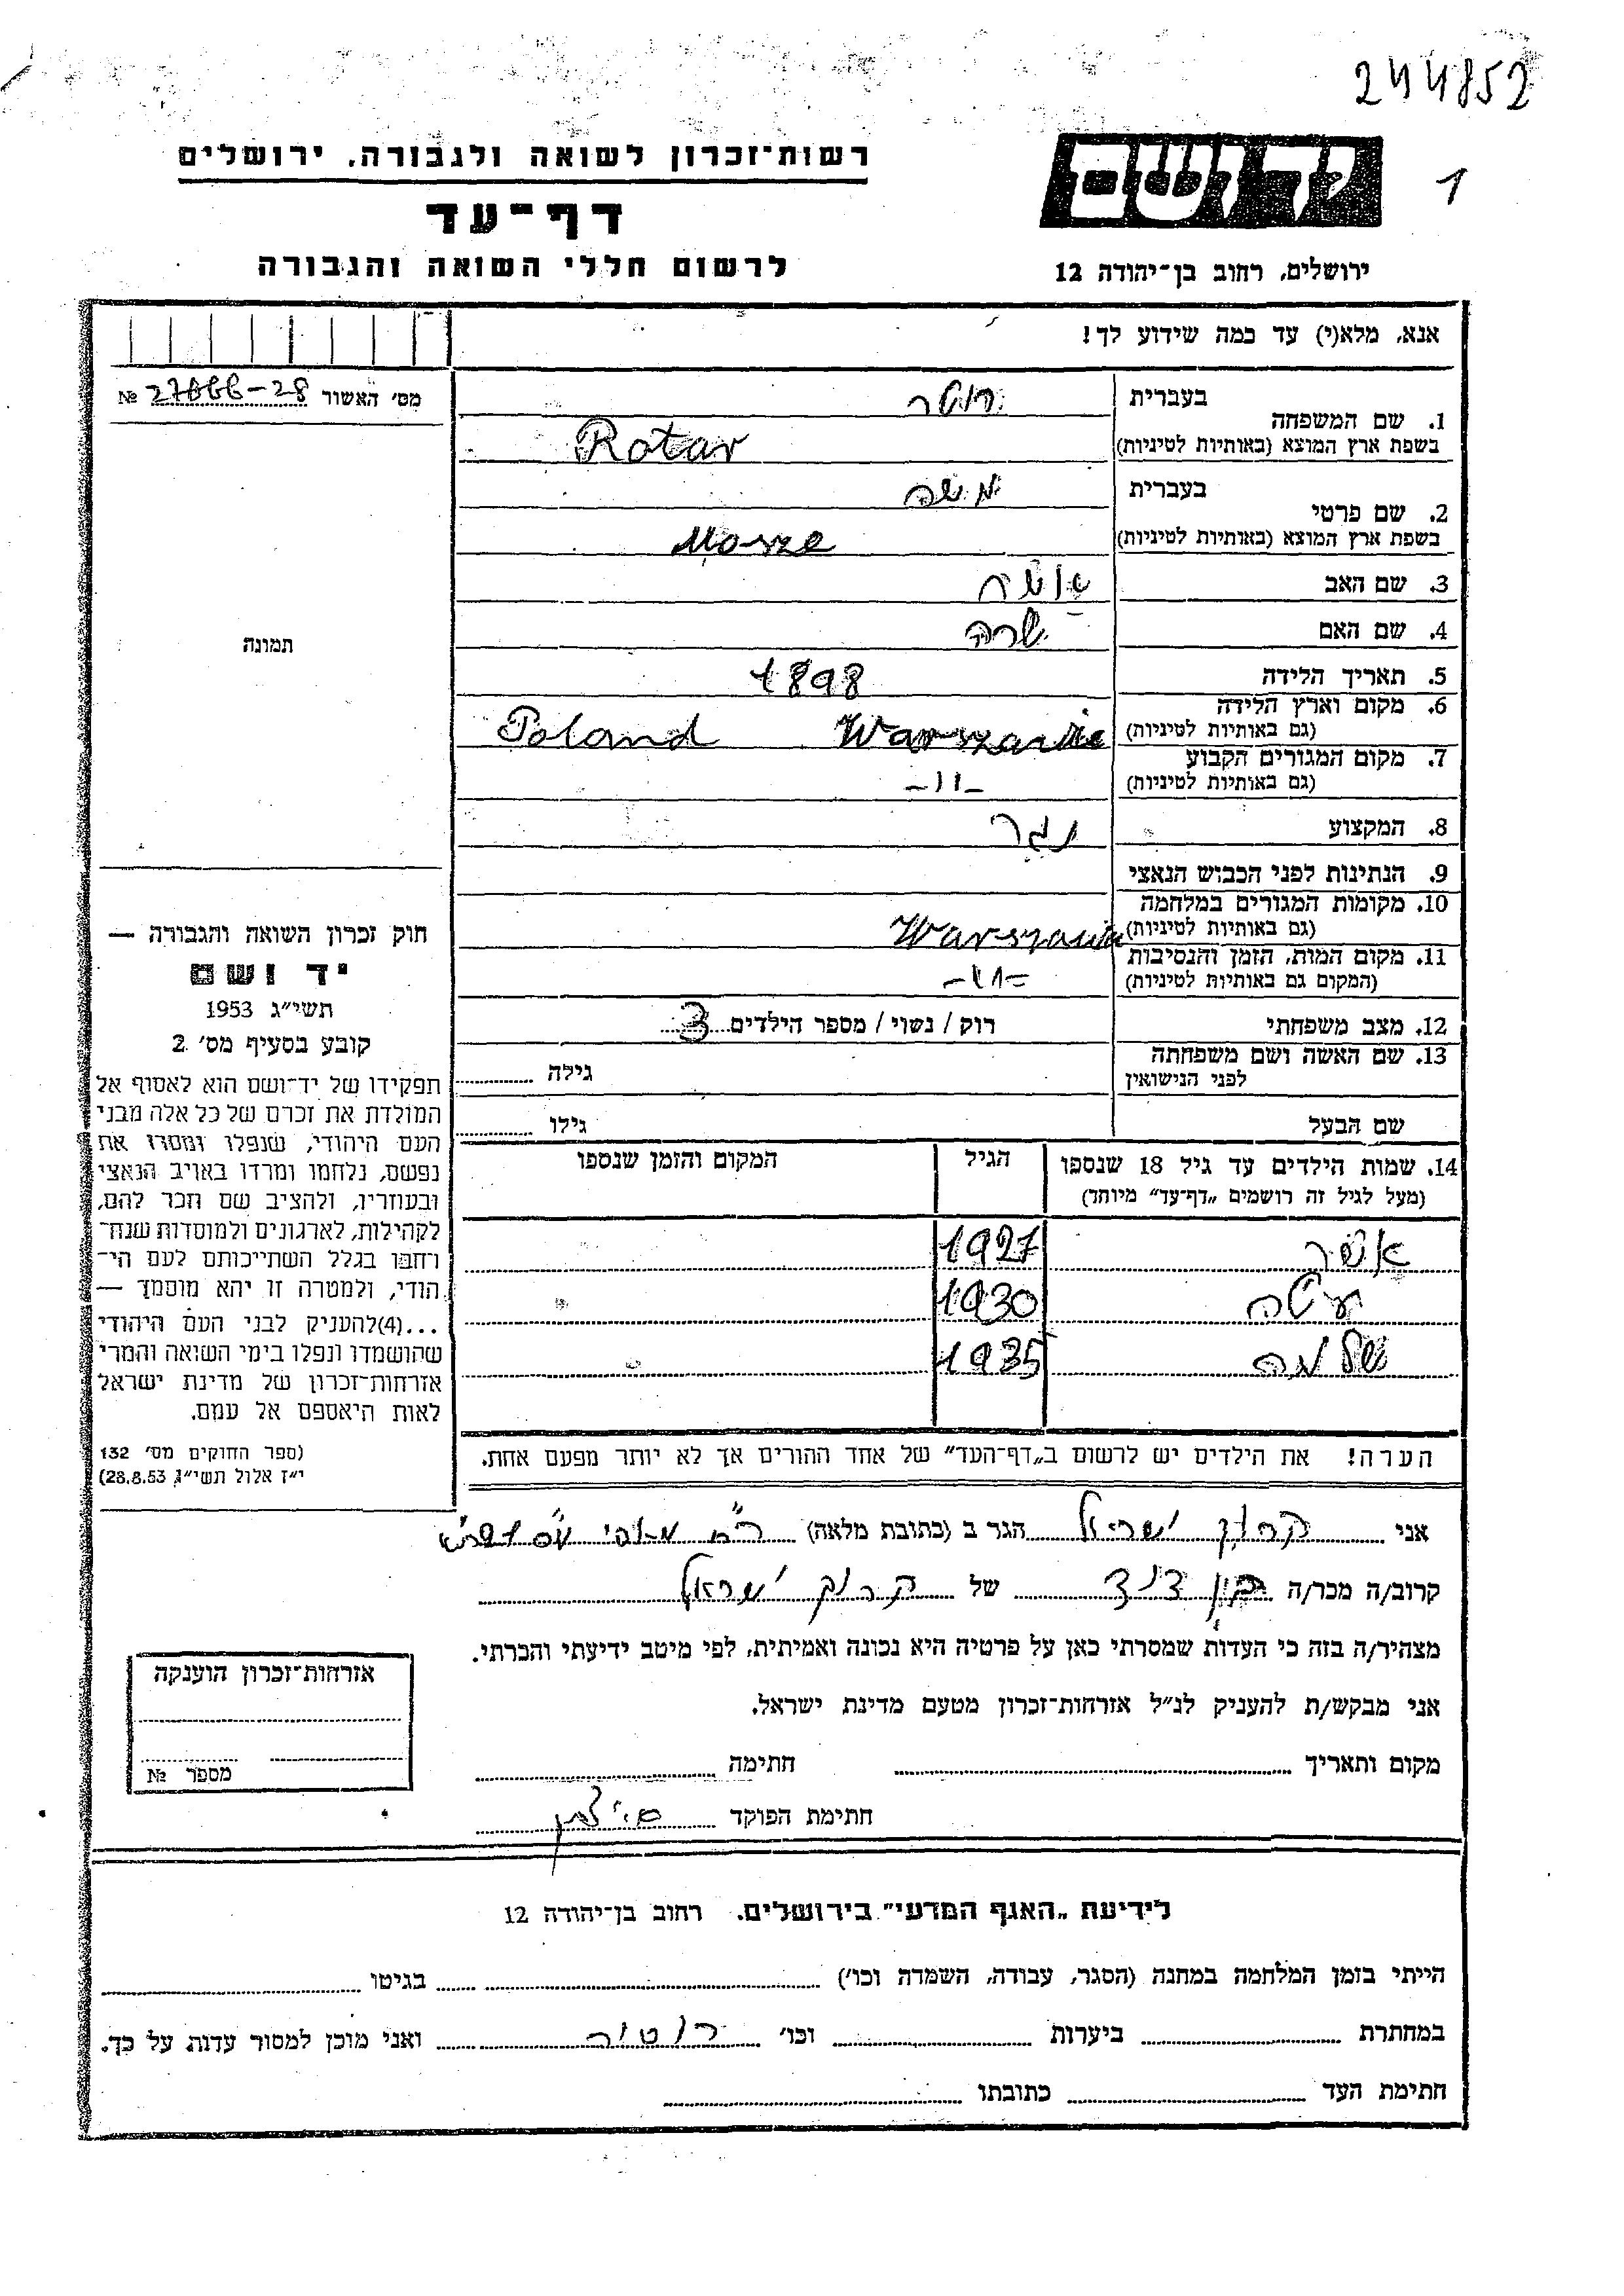 244852
1
יד ושם
ירושלים, רחוב בן־יהודה 12
רשות־זכרון לשואה ולגבורה, ירושלים
דף־עד
לרשום חללי השואה והגבורה
אנא, מלא(י) עד כמה שידוע לך!
מס׳ האשור № 27866-28
תמונה
1. שם המשפחה
בעברית
רוטר
בשפת ארץ המוצא (באותיות לטיניות)
Rotar
2. שם פרטי
בעברית
משה
בשפת ארץ המוצא (באותיות לטיניות)
Mosze
3. שם האב
אשר
4. שם האם
שרה
5. תאריך הלידה
1898
6. מקום וארץ הלידה
(גם באותיות לטיניות)
Poland Warszawie
7. מקום המגורים הקבוע
(גם באותיות לטיניות)
-11-
8. המקצוע
נגר
9. הנתינות לפני הכבוש הנאצי
10. מקומות המגורים במלחמה
(גם באותיות לטיניות)
Warszawie
11. מקום המות, הזמן והנסיבות
(המקום גם באותיות לטיניות)
-11-
12. מצב משפחתי
רוק / נשוי / מספר הילדים 3
13. שם האשה ושם משפחתה
לפני הנישואין
גילה
שם הבעל
גילו
14. שמות הילדים עד גיל 18 שנספו
(מעל לגיל זה רושמים „דף־עד״ מיוחד)
הגיל
המקום והזמן שנספו
אשר 1927
1930
שלמה 1935
הערה! את הילדים יש לרשום ב„דף־העד״ של אחד ההורים אך לא יותר מפעם אחת.
חוק זכרון השואה והגבורה —
יד ושם
תשי״ג 1953
קובע בסעיף מס׳ 2
תפקידו של יד־ושם הוא לאסוף אל
המולדת את זכרם של כל אלה מבני
העם היהודי, שנפלו ומסרו את
נפשם, נלחמו ומרדו באויב הנאצי
ובעוזריו, ולהציב שם וזכר להם,
לקהילות, לארגונים ולמוסדות שנח־
רחבו בגלל השתייכותם לעם הי־
הודי, ולמטרה זו יהא מוסמך —
...(4)להעניק לבני העם היהודי
שהושמדו ונפלו בימי השואה והמרי
אזרחות־זכרון של מדינת ישראל
לאות היאספם אל עמם.
(ספר החוקים מס׳ 132
י״ז אלול תשי״ג 28.8.53)
אני קרוק ישראל הגר ב (כתובת מלאה)
קרוב/ה מכר/ה בן דוד של קרוק ישראל
מצהיר/ה בזה כי העדות שמסרתי כאן על פרטיה היא נכונה ואמיתית, לפי מיטב ידיעתי והכרתי.
אני מבקש/ת להעניק לנ״ל אזרחות־זכרון מטעם מדינת ישראל.
מקום ותאריך חתימה
חתימת הפוקד
אזרחות־זכרון הוענקה
מספר №
לידיעת „האגף המדעי״ בירושלים. רחוב בן־יהודה 12
הייתי בזמן המלחמה במחנה (הסגר, עבודה, השמדה וכו׳) בגיטו
במחתרת ביערות וכו׳ רוטר ואני מוכן למסור עדות על כך.
חתימת העד כתובתו